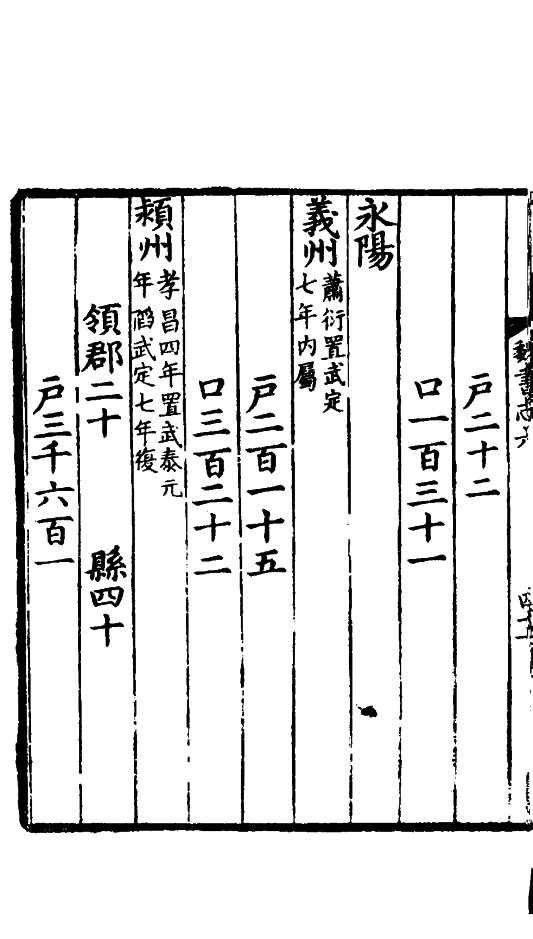 魏書志六
戸二十二
口一百三十一
永陽
義州蕭衍置武定七年内屬
戸二百一十五
口三百二十二
潁州孝昌四年置武泰元年陷武定七年復
領郡二十 縣四十
戸三千六百一